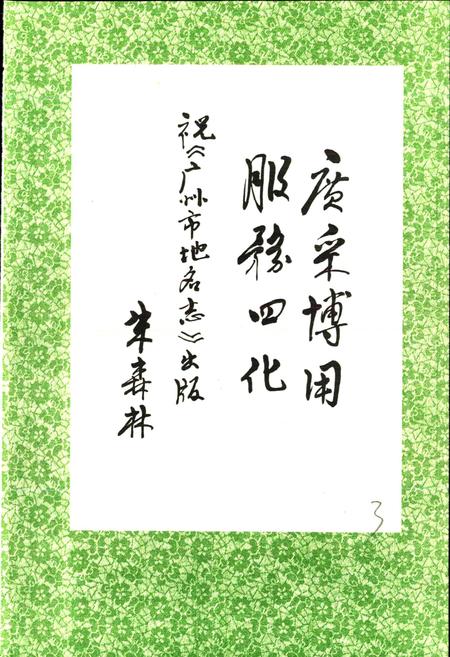 廣采博用
服務四化
祝《广州市地名志》出版
朱森林
3